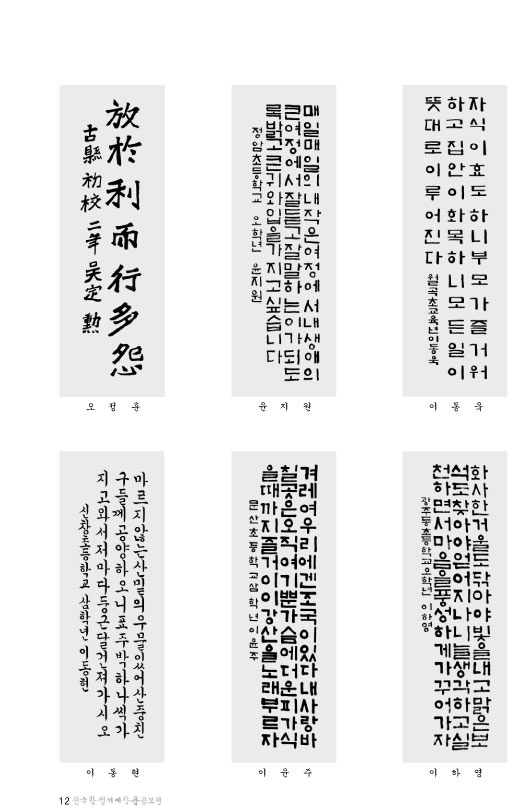 放於利而行多怨
古縣初校二年 吳定勳
오 정 훈
매일매일의내작은여정에서내생애의
큰여정에서잘듣고잘말하는이가되도
록밝고큰귀와입을가지고싶습니다
정암초등학교 오학년 윤지원
윤 지 원
자식이효도하니부모가즐거워
하고집안이화목하니모든일이
뜻대로이루어진다
월곡초교육년이동욱
이 동 욱
마르지않는산밑의우물있어산중친
구들께공양하오니표주박하나씩가
지고와서저마다둥근달건져가시오
신창초등학교 삼학년 이동현
이 동 현
겨레여우리에겐조국이있다내사랑바
칠곳은오직여기뿐가슴에더운피가식
을때까지즐거이이강산을노래부르자
문산초등학교삼학년이윤주
이 윤 주
화사한거울도닦아야빛을내고맑은보
석도찾아야얻어지나니늘생각하고실
천하면서마음을풍성하게가꾸어가자
광주동초등학교오학년 이하영
이 하 영
12